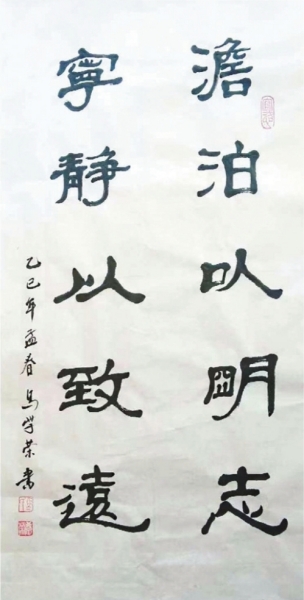 澹泊以明志
寧静以致遠
乙巳年孟春馬学荣書